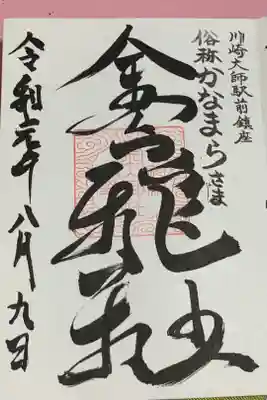 川崎大師駅前鎮座
俗称かなまらさま
金
令和元年八月九日